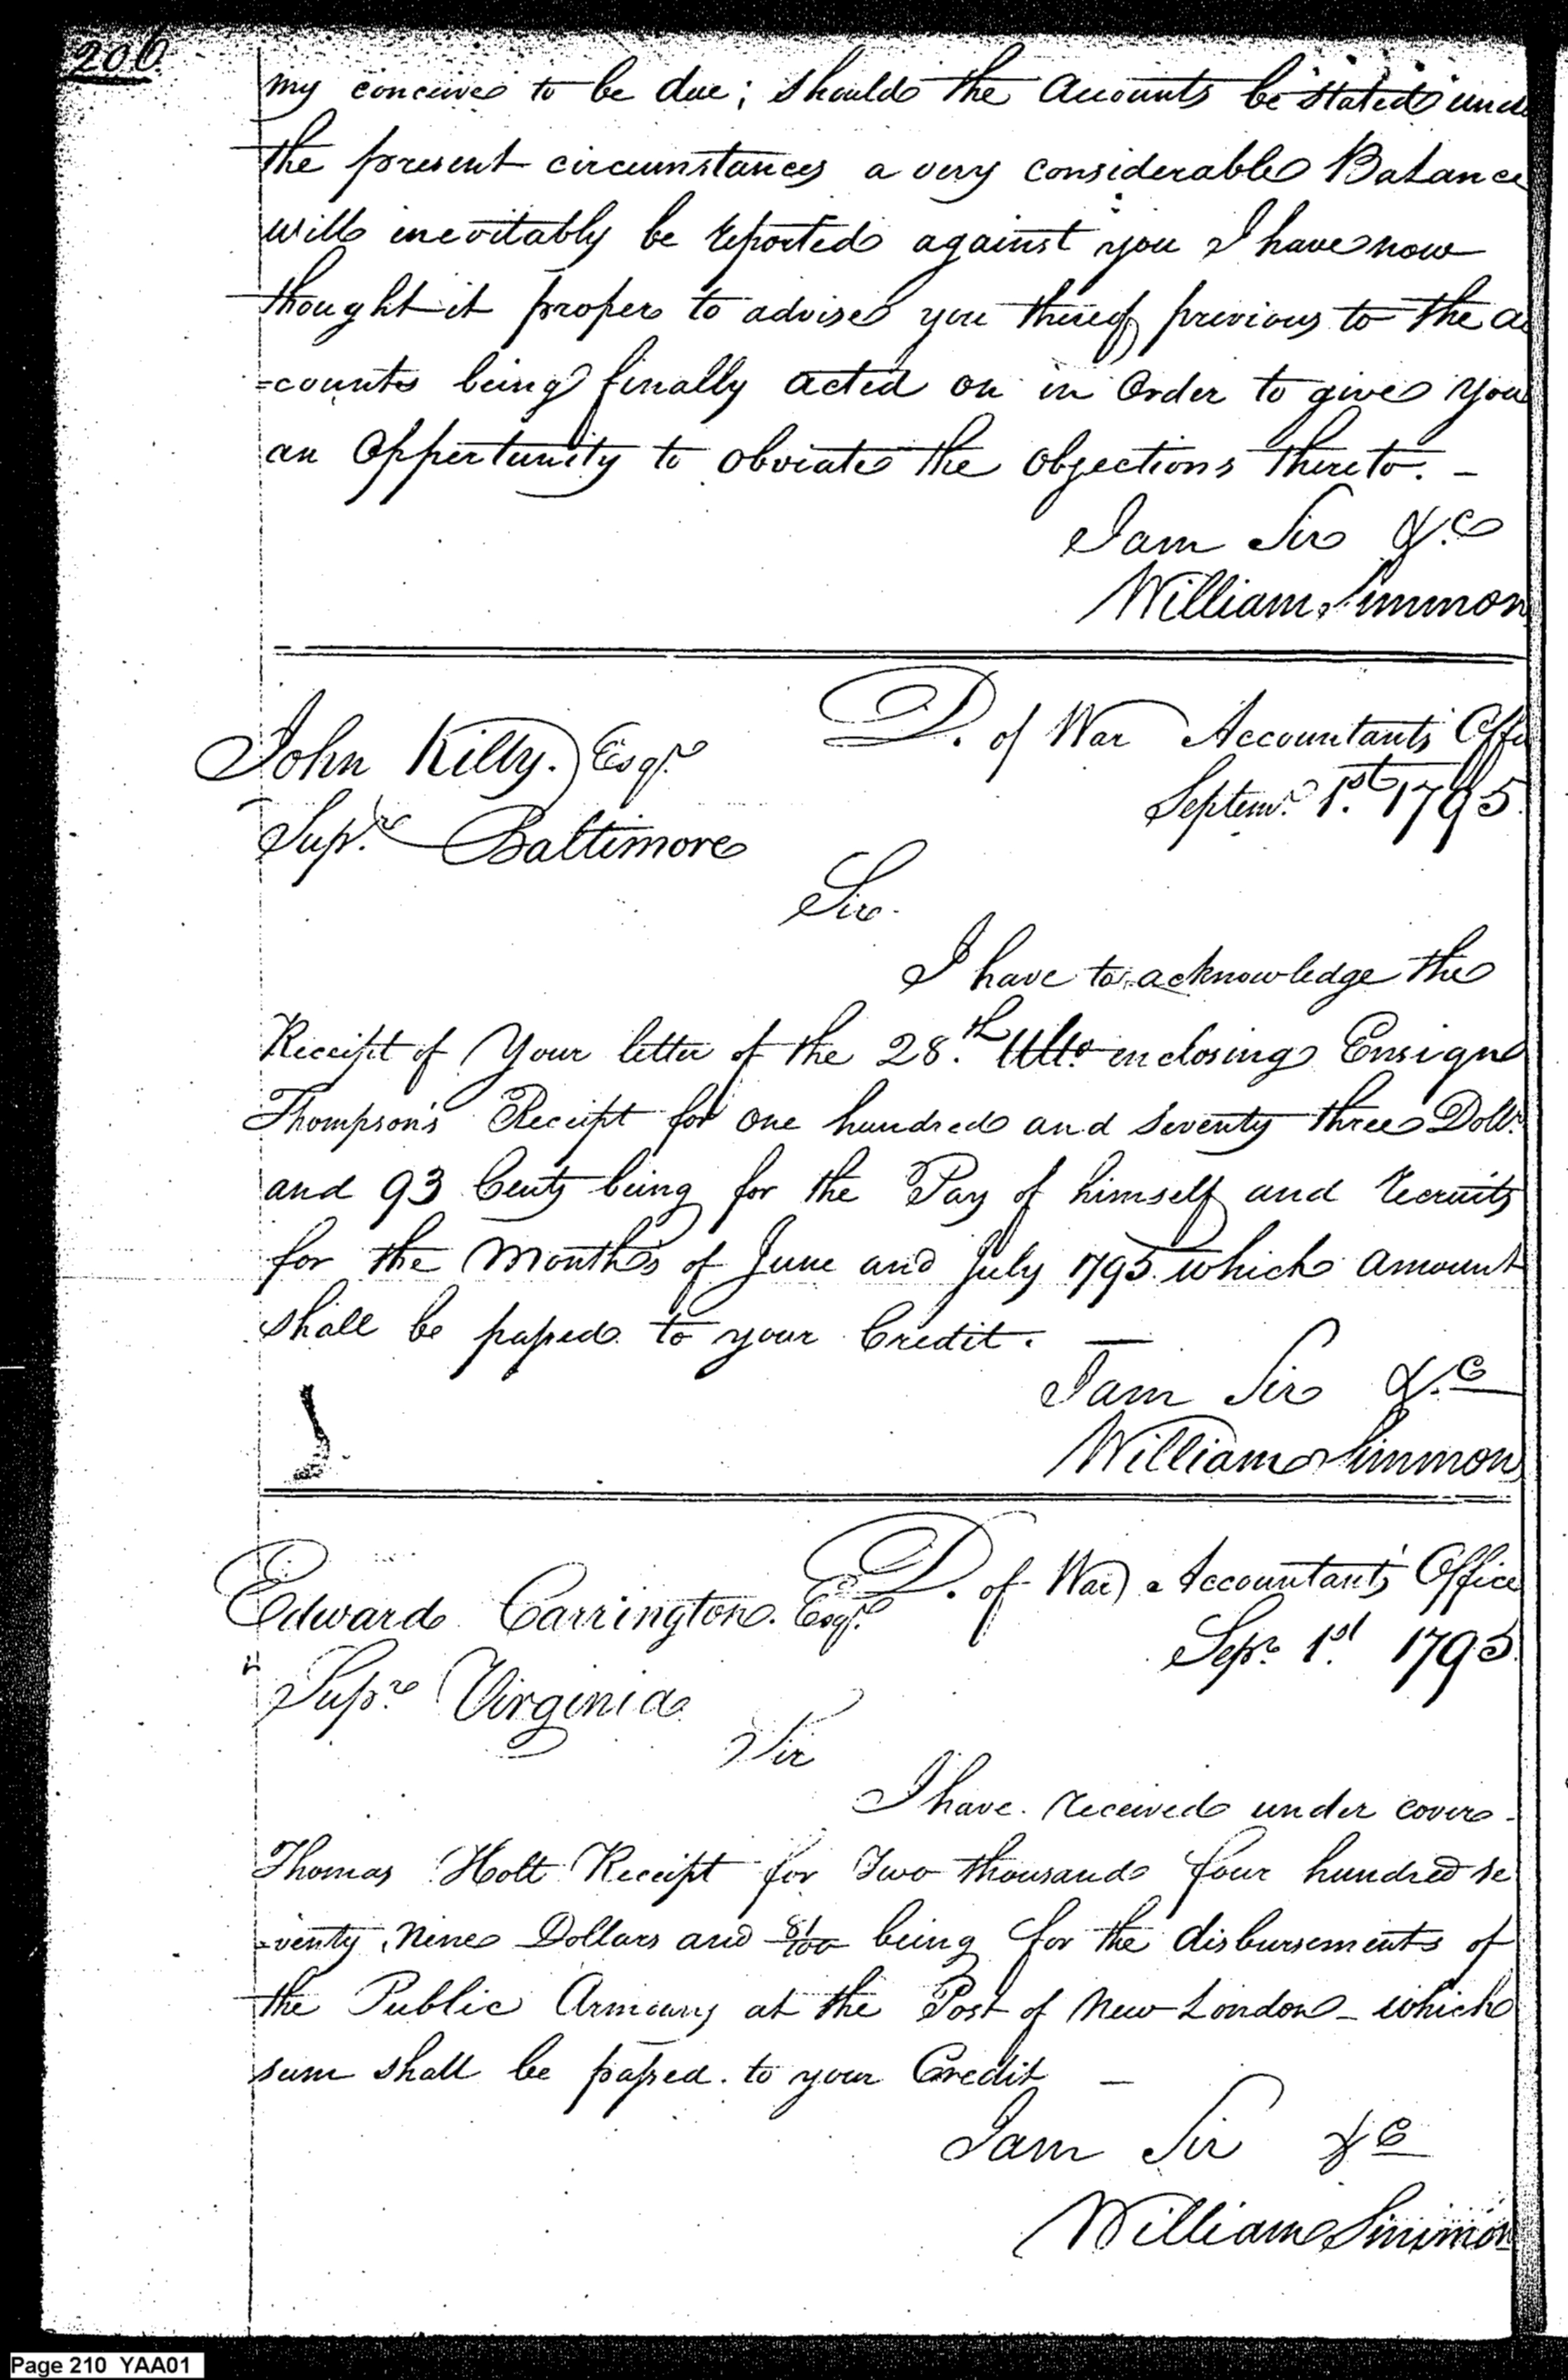 206
my conceive to be due; should the Accounts be stated und
the present circumstances a very considerable Balance
will inevitably be reported against you I have now
thought it proper to advise you thereof previous to the ac
=counts being finally acted on in Order to give you
an Oppertunity to obviate the objections thereto. -
I am Sir &c
William Simmon
D. of War Accountants Offi
John Killy. Esqr
Septemr 1st 1795.
Supr Baltimore
Sir.
I have to acknowledge the
Receipt of Your letter of the 28.th Ulto enclosing Ensign
Thompson's Receipt for one hundred and seventy three Dollr
and 93 Cents being for the Pay of himself and recruits
for the Months of June and July 1795 which amount
shall be passed to your Credit. —
I am Sir &c
William Simmon
D. of War Accountants Office
Edward Carrington. Esqr
Sepr 1st 1795.
Supr Virginia
Sir
I have received under cover
Thomas Holt Receipt for Two thousand four hundred se
=venty Nine Dollars and 81/100 being for the disbursements of
the Public Armoury at the Post of New London - which
sum shall be passed to your Credit —
I am Sir &c
William Simmon
Page 210 YAA01